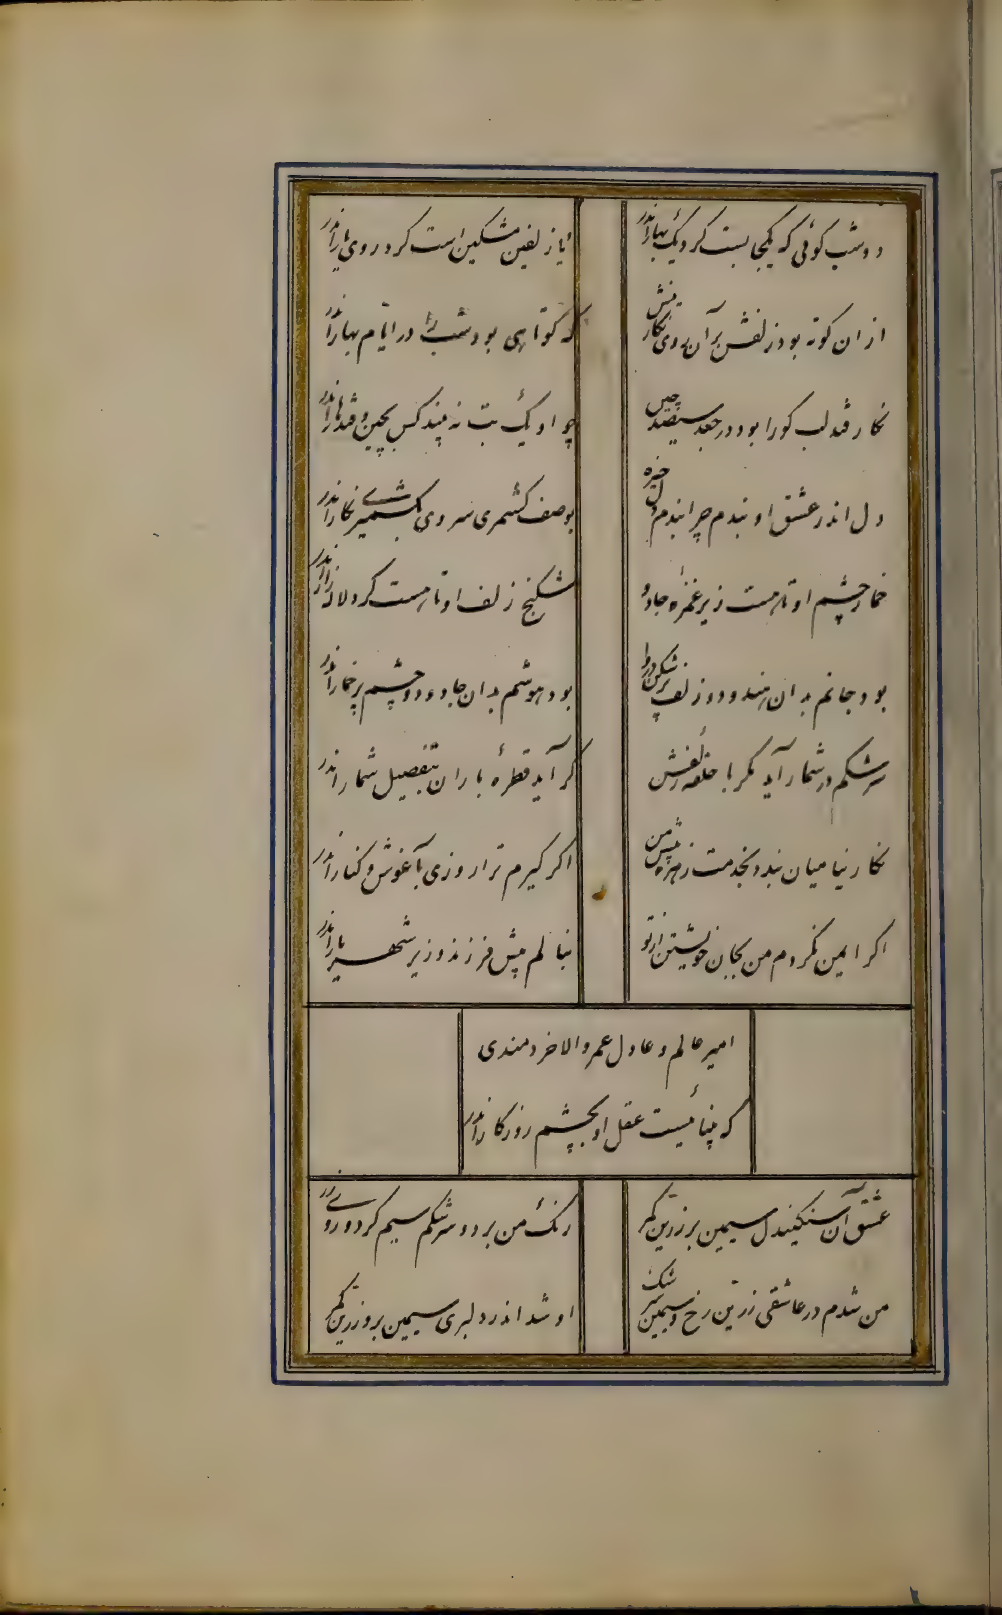 دو شب کوئی که یکجا بست کرد یک بهار اندر
یا زلفین مشکین است کرد روی یار اندر
از ان کوته بود زلفش بر آن روی نکارینش
که کوتاهی بود شب را در ایام بهار اندر
نکار قند لب کورا بود در جعد سیصد چین
چو او یک بت نه بیند کس بچین و قندهار اندر
دل اندر عشق او بندم چرا بندم دل خیره
بوصف کشمری سروی بکشمیری نکار اندر
خمار چشم او تا هست زیر غمزه جادو
شکنج زلف او تا هست کرد لاله زار اندر
بود جانم بدان هندو دو زلف پر شکن در وا
بود هوشم بدان جادو دو چشم پر خمار اندر
سرشکم در شمار آید مکر با حلقه زلفش
کر آید قطرهٔ باران بتفصیل شمار اندر
نکارینا میان بندد بخدمت زهره پیش من
اکر کیرم ترا روزی بآغوش و کنار اندر
اکر ایمن نکردم من بجان خویشتن از تو
بنالم پیش فرزند وزیر شهریار اندر
امیر عالم و عادل عمر والا خردمندی
که پیدا نیست عقل او بچشم روزکار اندر
عشق آن سنکیندل سیمین بر زرین کمر
رنک من برد و سرشکم سیم کرد و روی زر
من شدم در عاشقی زرین رخ و سیمین سرشک
او شد اندر دلبری سیمین بر و زرین کمر